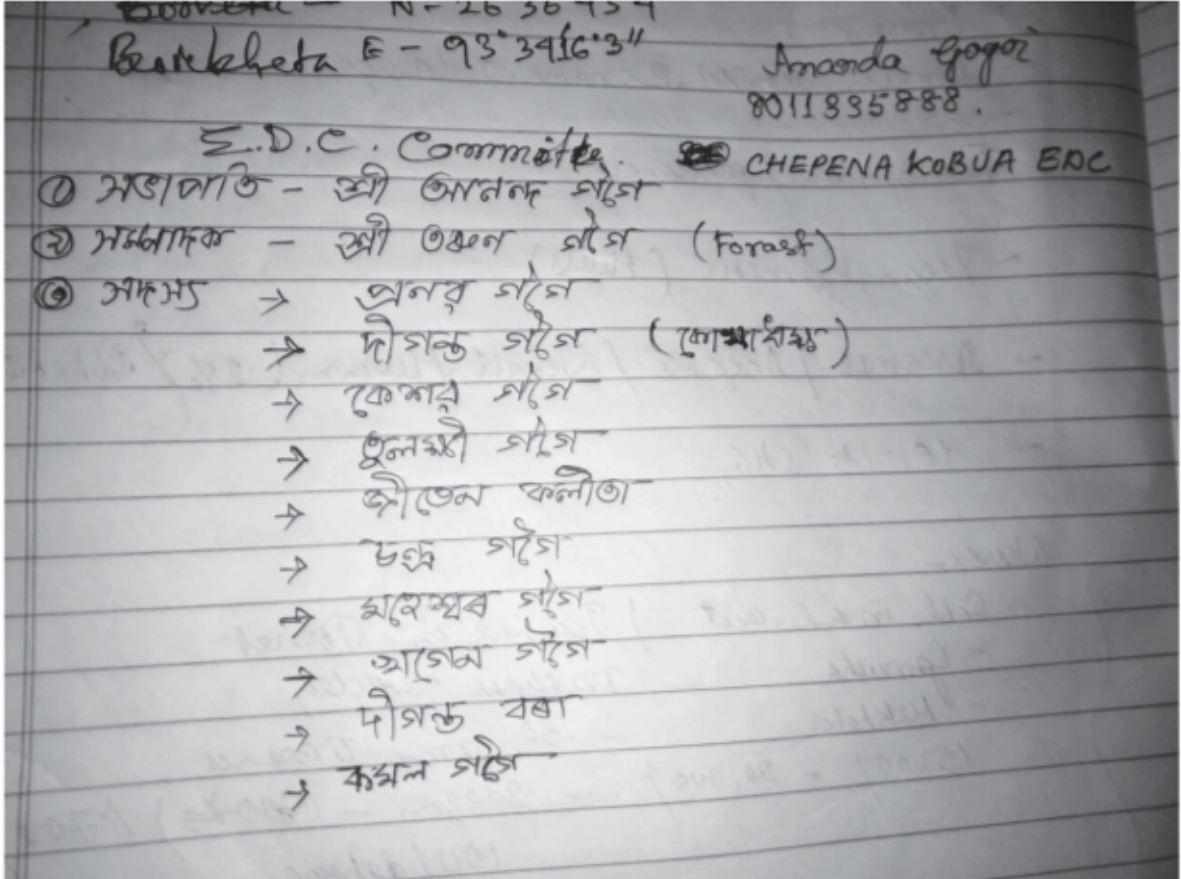 N - 26 36 454
Borekheta E - 93°34'16.3"
Ananda Gogoi
8011335888.
E.D.C. Committe.
CHEPENA KOBUA EDC
① সভাপতি - শ্ৰী আনন্দ গগৈ
② সম্পাদক - শ্ৰী তৰুণ গগৈ (Forast)
③ সদস্য → প্ৰনৱ গগৈ
→ দীগন্ত গগৈ (কোষাধক্ষ্য)
→ কেশৱ গগৈ
→ তুলক্ষী গগৈ
→ জীতেন কলীতা
→ চন্দ্ৰ গগৈ
→ মহেশ্বৰ গগৈ
→ খগেন গগৈ
→ দীগন্ত বৰা
→ কমল গগৈ